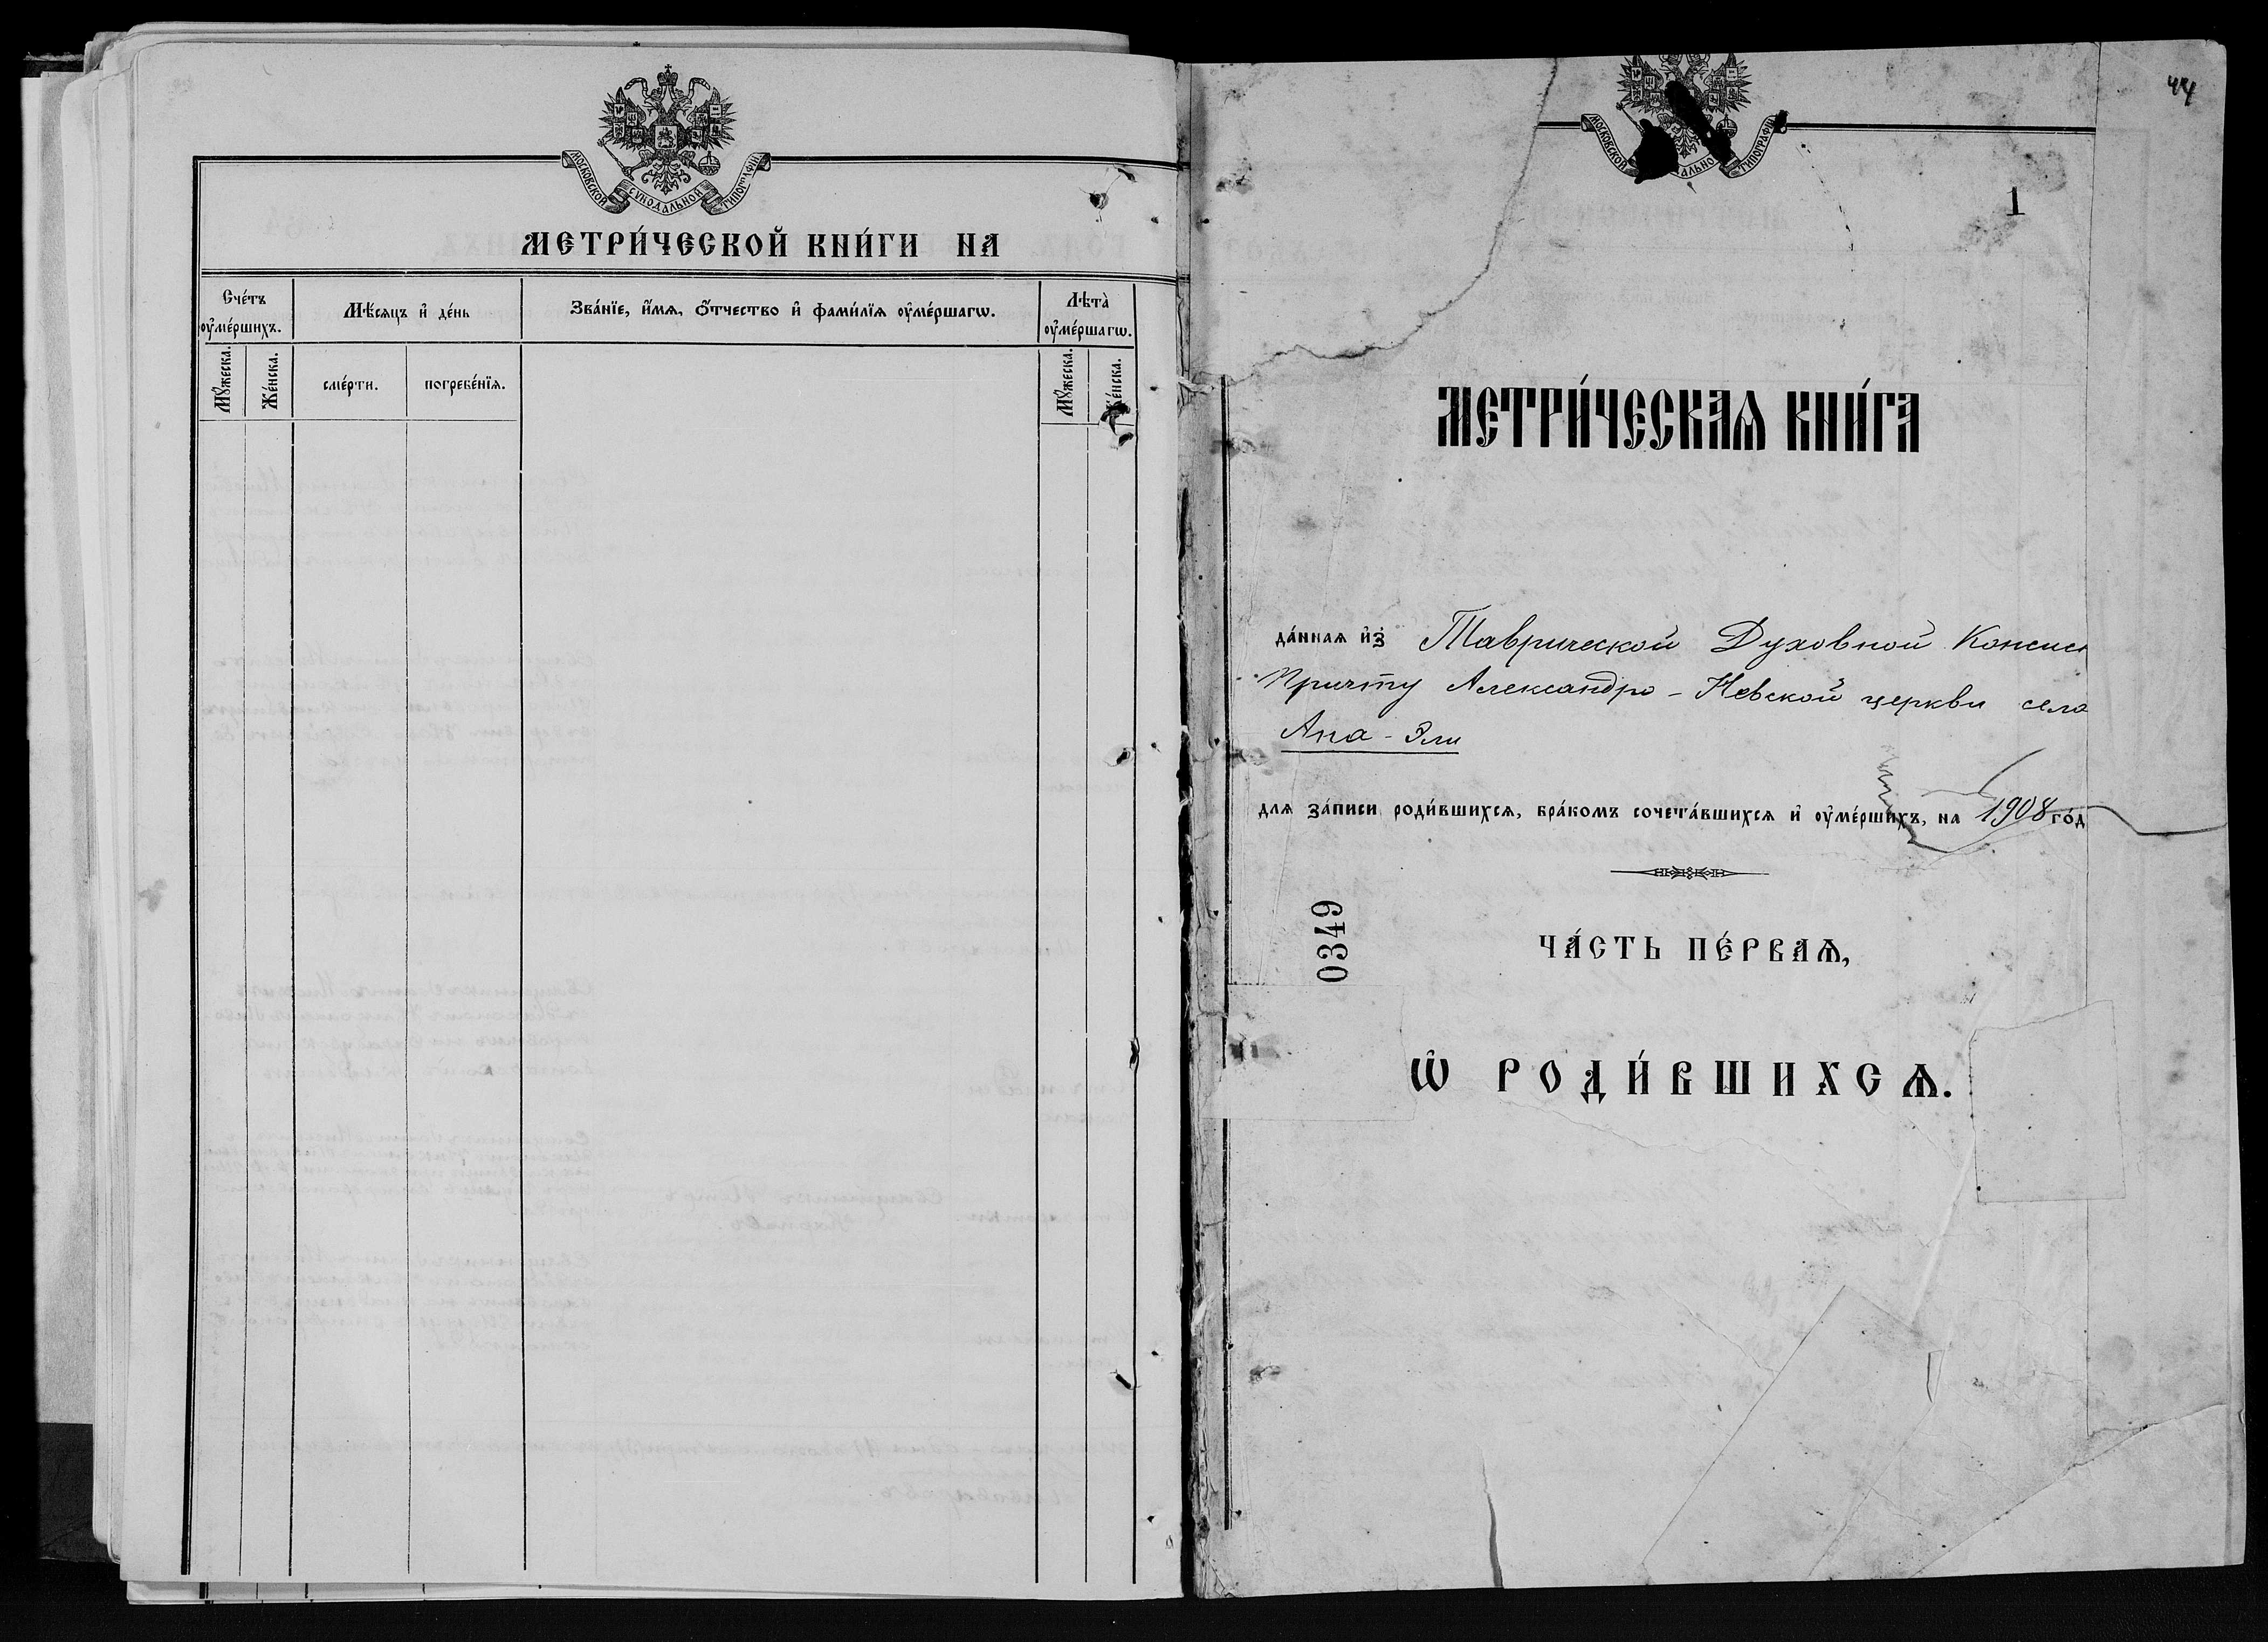 МОСКОВСКОЙ СѴНОДАЛЬНОЙ ТИПОГРАФІИ
МЕТРИ́ЧЕСКОЙ КНИ́ГИ НА
Сче́тъ ᲂу҆ме́ршихъ.
Мѣ́сяцъ и҆ де́нь
Зва́нїе, и҆́мѧ, ѻ҆́тчество и҆ фами́лїѧ ᲂу҆ме́ршагѡ.
Лѣта̀ ᲂу҆ме́ршагѡ.
Мꙋ́жеска.
Же́нска.
сме́рти.
погребе́нїѧ.
Мꙋ́жеска.
Же́нска.
44
МОСКОВСКОЙ АЛЬНО ТИПОГРАФІИ
1
МЕТРИ́ЧЕСКАѦ КНИ́ГА
да́ннаѧ и҆з̾ Таврической Духовной Консис
Причту Александро-Невской церкви села
Ана-Эли
для за́писи роди́вшихсѧ, бра́комъ сочета́вшихсѧ и҆ ᲂу҆ме́ршихъ, на 1908 го́д
0349
ЧА́СТЬ ПЕ́РВАѦ,
Ѡ҆ РОДИ́ВШИХСѦ.